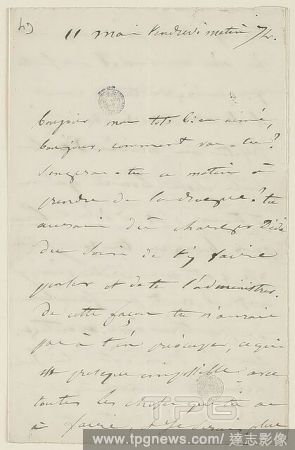 11 mai Vendredi matin 7h.
bonjour mon toto bien aimé,
bonjour, comment vas-tu ?
Songeras-tu ce matin à
prendre de la drogue ? tu
aurais dû charger
du soin de t'y faire
penser et de te l'administrer.
De cette façon tu n'aurais
pas à t'en préoccuper, ce qui
est presque impossible avec
toutes les choses
à faire, et
TPG
www.tpgnews.com / 達志影像